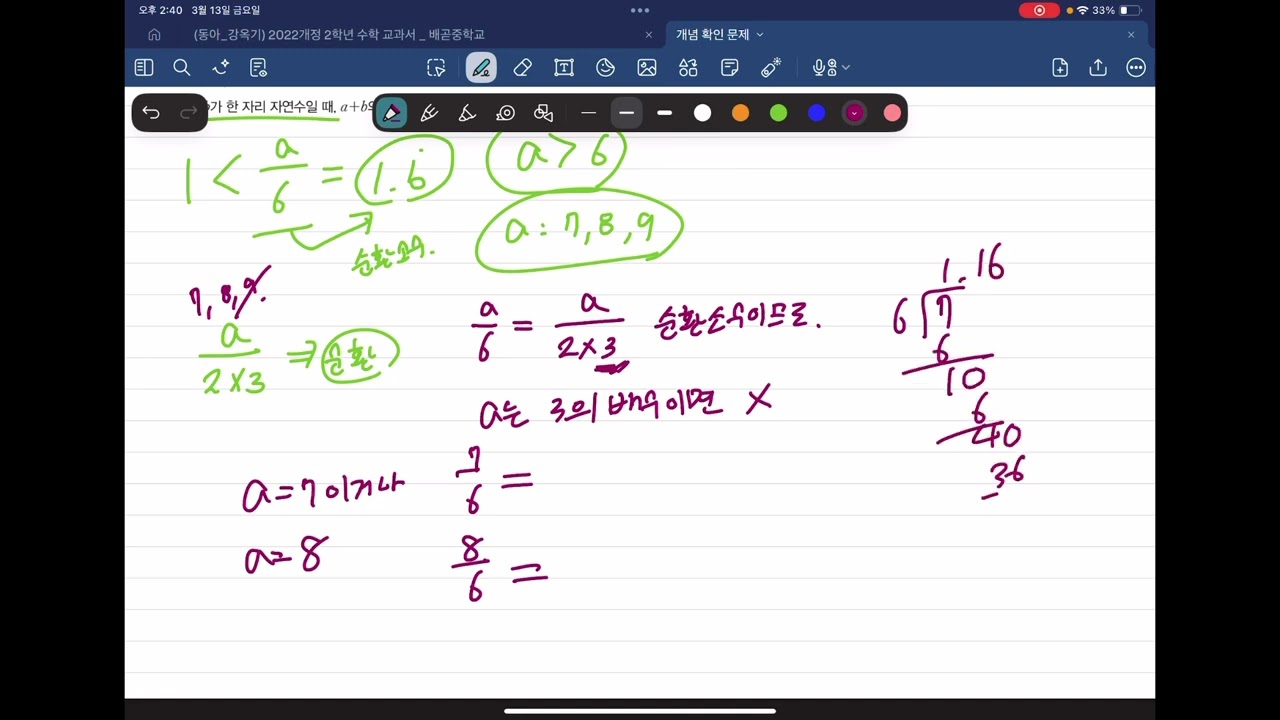 오후 2:40 3월 13일 금요일 33%
(동아_강옥기) 2022개정 2학년 수학 교과서 _ 배곧중학교
개념 확인 문제
가 한 자리 자연수일 때, a+b의
1 < a/6 = 1.6̇ a > 6
a : 7, 8, 9
순환소수.
7, 8, 9.
a/(2×3) ⇒ 순환
a/6 = a/(2×3) 순환소수이므로.
a는 3의 배수이면 ×
a=7이거나 7/6 =
a=8 8/6 =
1.16
6 7
6
10
6
40
36